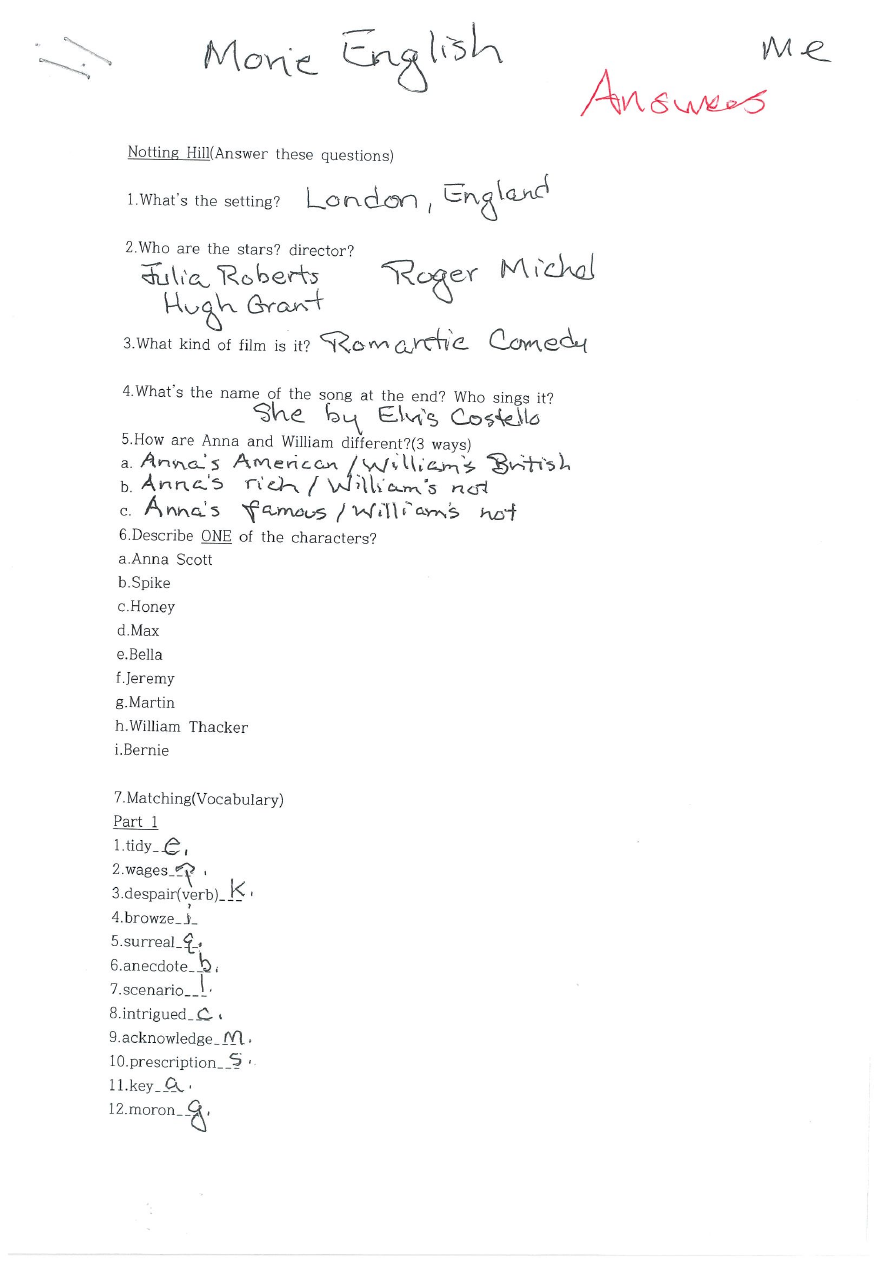 Movie English
Me
Answers
Notting Hill(Answer these questions)
1.What's the setting? London, England
2.Who are the stars? director?
Julia Roberts Roger Michel
Hugh Grant
3.What kind of film is it? Romantic Comedy
4.What's the name of the song at the end? Who sings it?
She by Elvis Costello
5.How are Anna and William different?(3 ways)
a. Anna's American / William's British
b. Anna's rich / William's not
c. Anna's famous / William's not
6.Describe ONE of the characters?
a.Anna Scott
b.Spike
c.Honey
d.Max
e.Bella
f.Jeremy
g.Martin
h.William Thacker
i.Bernie
7.Matching(Vocabulary)
Part 1
1.tidy_e.
2.wages_p.
3.despair(verb)_k.
4.browze_i_
5.surreal_q.
6.anecdote_b.
7.scenario_l.
8.intrigued_c.
9.acknowledge_m.
10.prescription_s.
11.key_a.
12.moron_g.